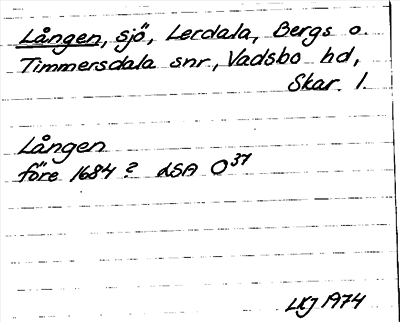 Lången, sjö, Lerdala, Bergs o.
Timmersdala snr, Vadsbo hd,
Skar. l.
Lången
före 1684? LSA O37
LKJ 1974